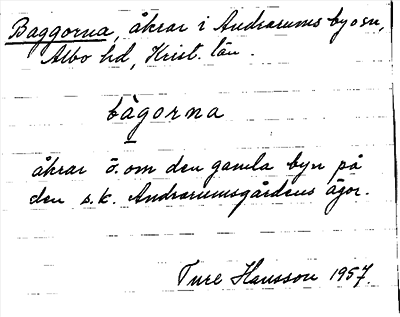 Baggorna, åkrar i Andrarums by o sn,
Albo hd, Krist. län.
bàgorna
åkrar ö. om den gamla byn på
den s.k. Andrarumsgårdens ägor.
Ture Hansson 1957.